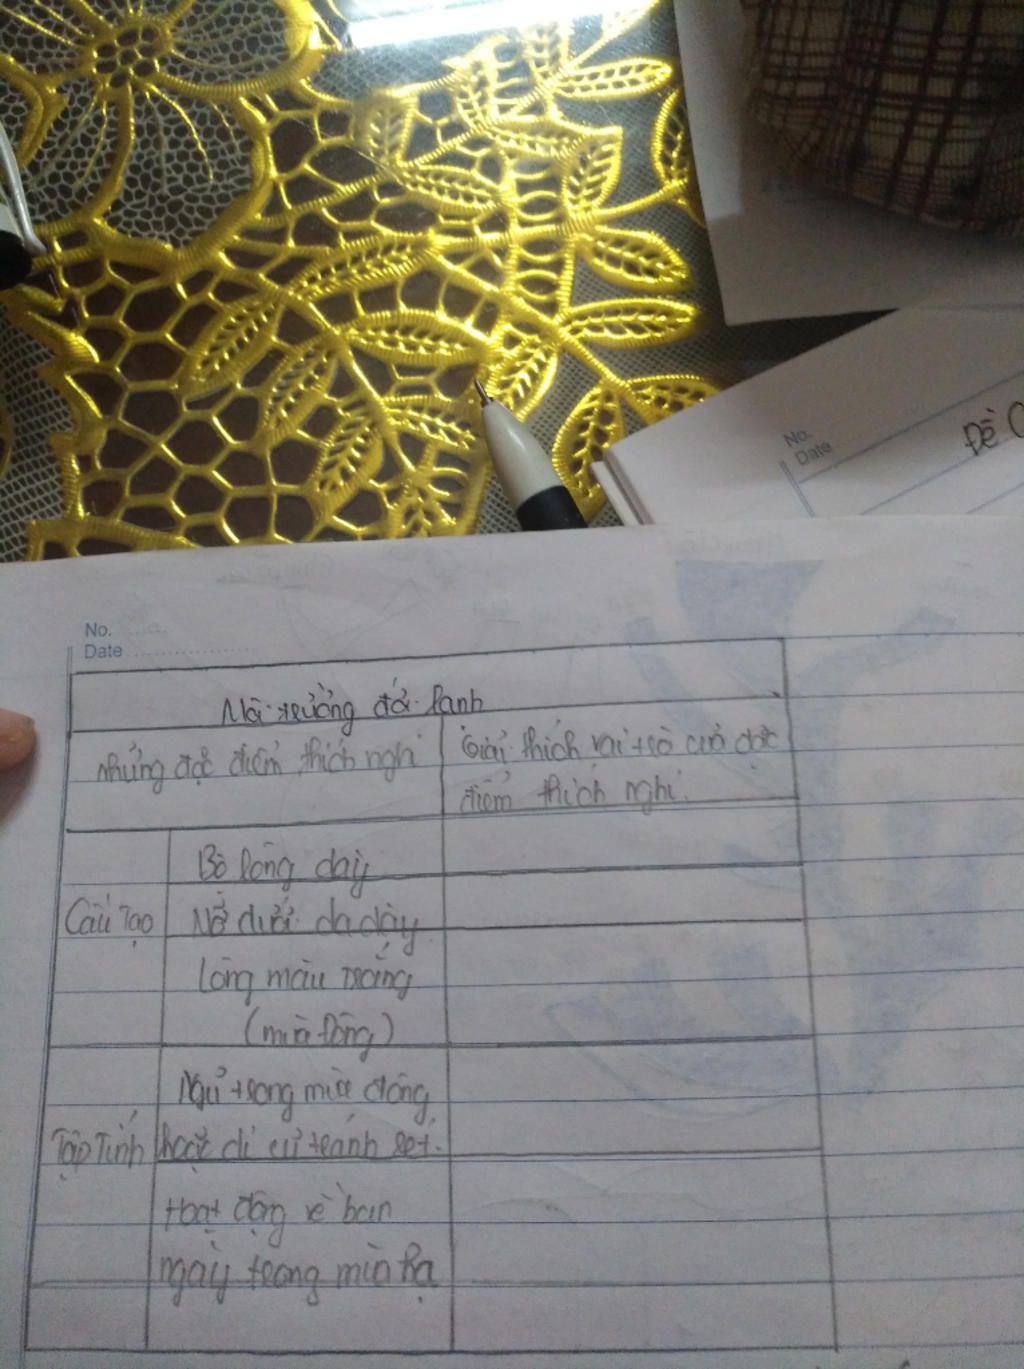 No.
Date
Đề C
No.
Date
Môi trường đới lạnh
những đặc điểm thích nghi
Giải thích vai trò của đặc
điểm thích nghi.
Cấu Tạo
Bộ lông dày
Mỡ dưới da dày
Lông màu trắng
(mùa đông)
Tập Tính
Ngủ trong mùa đông
hoặc di cư tránh rét.
Hoạt động về ban
ngày trong mùa hạ